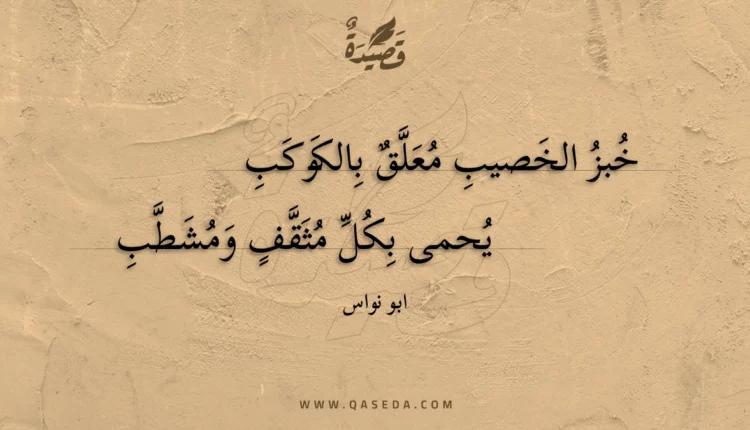 قَصِيْدَةٌ
خُبزُ الخَصيبِ مُعَلَّقٌ بِالكَوكَبِ
يُحمى بِكُلِّ مُثَقَّفٍ وَمُشَطَّبِ
ابو نواس
WWW.QASEDA.COM